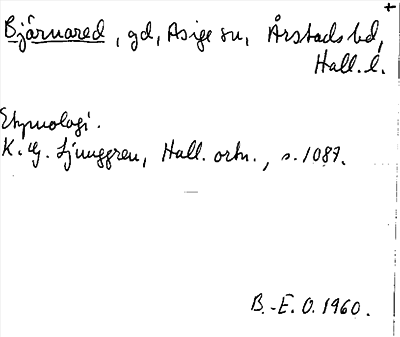 Bjärnared, gd, Asige sn, Årstads hd,
Hall. l.
Etymologi.
K. G. Ljunggren, Hall. ortn., s. 108f.
B.-E. O. 1960.